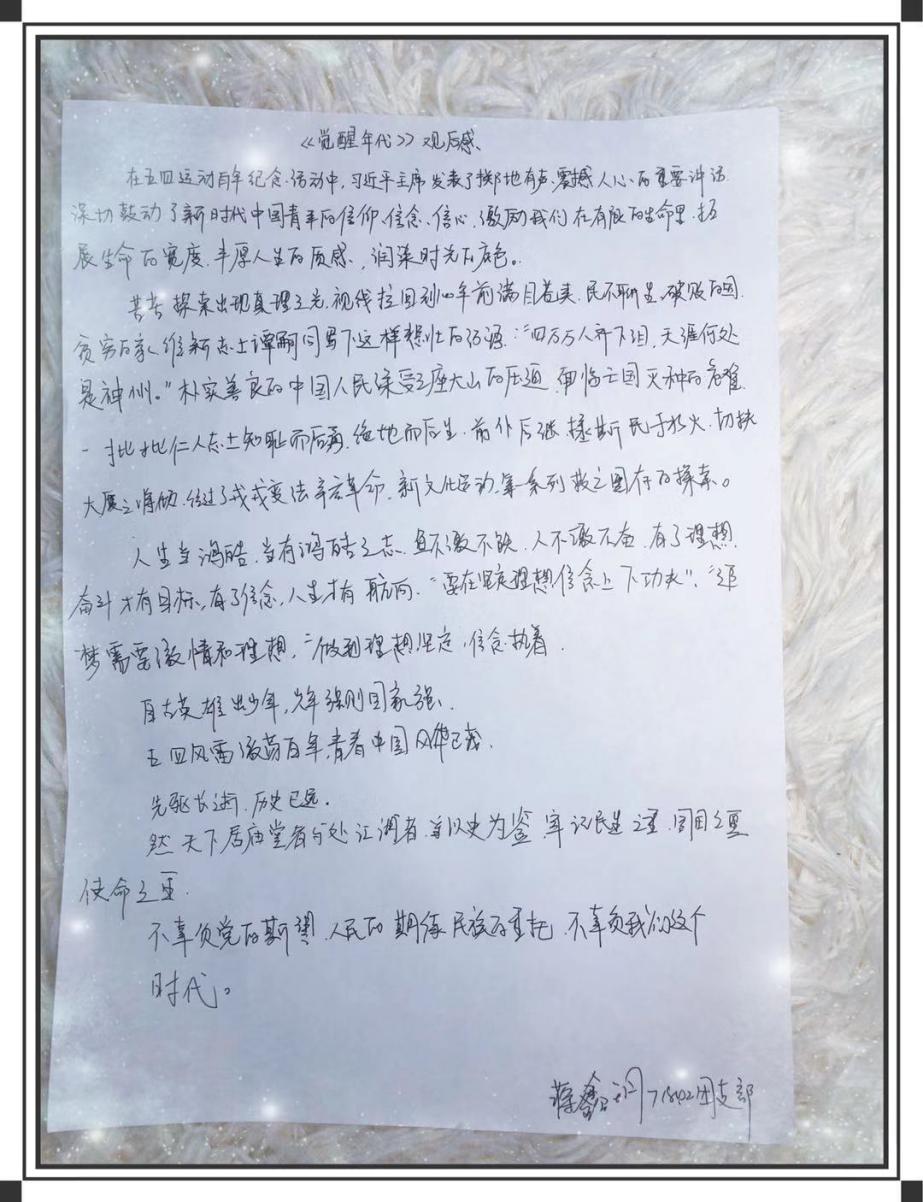 《觉醒年代》观后感
在五四运动百年纪念活动中,习近平主席发表了掷地有声、震撼人心的重要讲话
深切鼓动了新时代中国青年的信仰、信念、信心,激励我们在有限的生命里,拓
展生命的宽度,丰厚人生的质感,润染时光的底色。
苦苦探索出现真理之光,视线拉回到100年前满目苍夷、民不聊生、破败的国
贫穷的家,维新志士谭嗣同写下这样悲壮的 :“四万万人齐下泪,天涯何处
是神州。”朴实善良的中国人民深受三座大山的压迫,面临亡国灭种的危难
一批批仁人志士知耻而后勇,绝地而后生,前仆后继,拯斯民于水火,切扶
大厦之将倾,经过了戊戌变法辛亥革命、新文化运动,等系列救亡图存的探索。
人生当鸿鹄,当有鸿鹄之志,鱼不激不跃,人不激不奋,有了理想,
奋斗才有目标,有了信念,人生才有航向,“要在坚定理想信念上下功夫”、“追
梦需要激情和理想,”做到理想坚定,信念执着.
自古英雄出少年,少年强则国家强、
五四风雷激荡百年,青春中国风华正茂.
先驱长逝,历史已远。
然天下居庙堂者与处江湖者,当以史为鉴,牢记民生之重,国 之重
使命之重.
不辜负党的期望、人民的期待、民族的重托,不辜负我们这个
时代。
蒋鑫 71802团支部